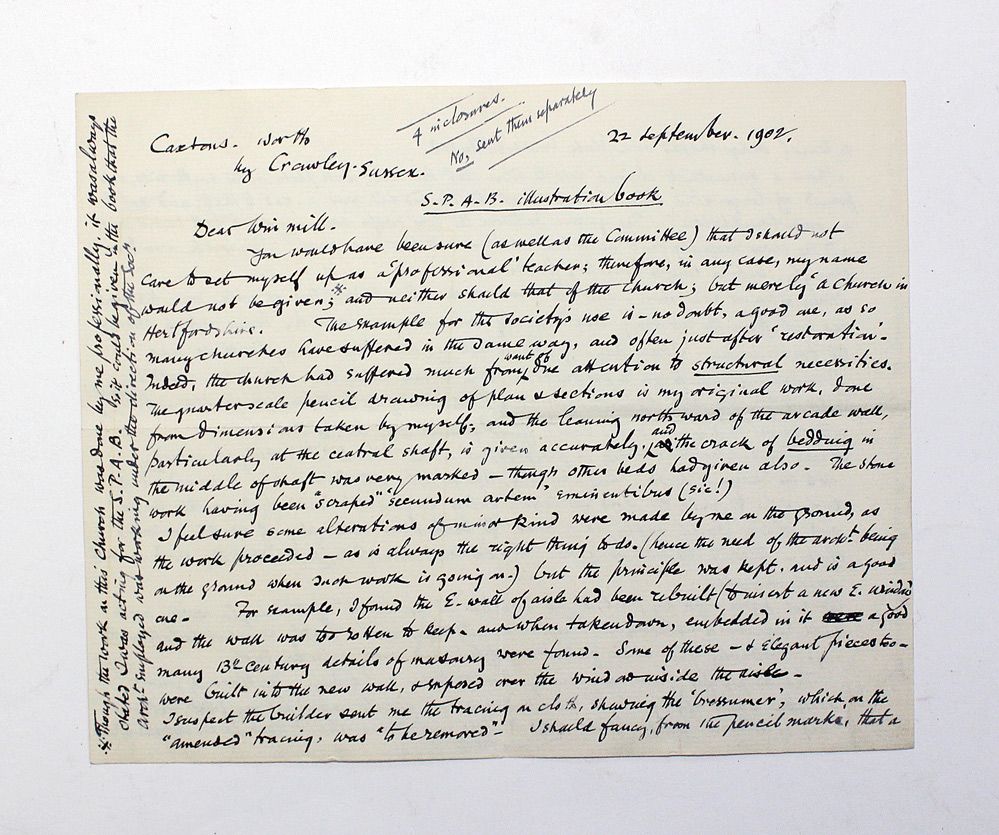 4 inclosures.
No, sent them separately
Caxtons. Worth
by Crawley. Sussex.
22 September. 1902.
S. P. A. B. illustration book
Dear Win mill.
You would have been sure (as well as the Committee) that I should not
care to set myself up as a 'professional' teacher; therefore, in any case, my name
would not be given;* and neither should that of the church; but merely "a Church in
Hertfordshire. The example for the Society's use is - no doubt, a good one, as so
many churches have suffered in the same way, and often just after 'restoration'.
Indeed, the church had suffered much from want of due attention to structural necessities.
The quarter scale pencil drawing of plan & sections is my original work, done
from dimensions taken by myself, and the leaning northward of the arcade wall,
particularly at the central shaft, is given accurately, and the crack of bedding in
the middle of shaft was very marked - though other beds had given also. The stone
work having been "scraped" "secundum artem" eminentibus (sic!)
I feel sure some alterations of minor kind were made by me on the ground, as
the work proceeded - as is always the right thing to do. (hence the need of the archt. being
on the ground when such work is going on.) but the principle was kept. and is a good
one. For example, I found the E. wall of aisle had been rebuilt (to insert a new E. window)
and the wall was too rotten to keep. and when taken down, embedded in it a good
many 13th century details of masonry were found. Some of these - & elegant pieces too -
were built into the new wall, & exposed over the window inside the aisle -
I suspect the builder sent me the tracing on cloth, showing the 'bressumer', which, on the
"amended" tracing, was "to be removed" - I should fancy, from the pencil marks, that a
* Though the work in this church was done by me professionally, it was always
stated I was acting for the S. P. A. B. is it could be given in the book that the
archt employed was working under the direction of the Socy.